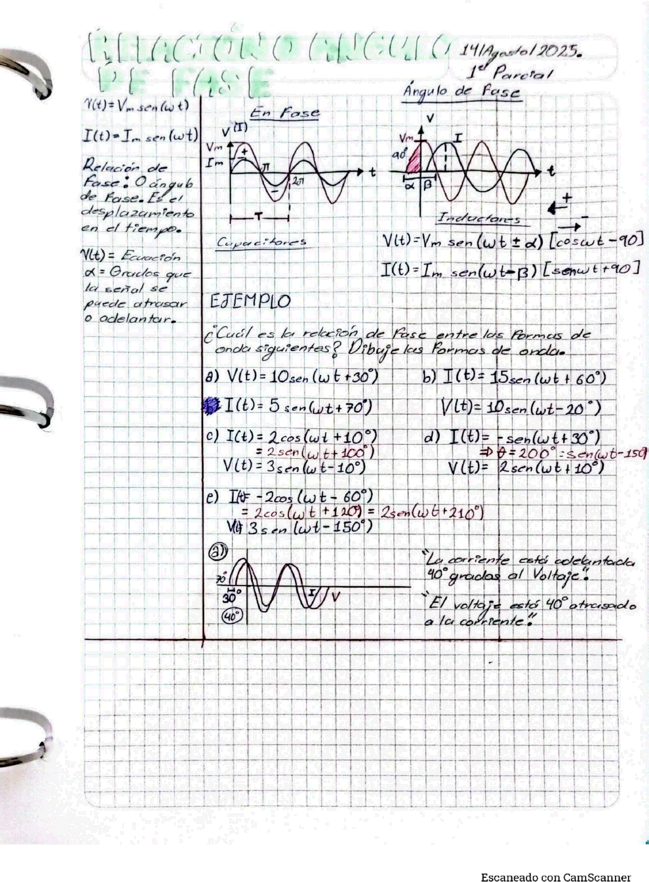 RELACIÓN O ANGULO
DE FASE
14/Agosto/2025.
1er Parcial
V(t)=Vm sen(ωt)
I(t)=Im sen(ωt)
Relación de
Fase: O ángulo
de Fase. Es el
desplazamiento
en el tiempo.
V(t)= Ecuación
α = Grados que
la señal se
puede atrasar
o adelantar.
En Fase
V(I)
Vm
Im
+
-
π
2π
t
T
Capacitores
Ángulo de Fase
V
I
Vm
90°
α
β
t
+
-
Inductores
V(t)=Vm sen(ωt ± α) [cosωt-90]
I(t)=Im sen(ωt-β) [senωt+90]
EJEMPLO
¿Cuál es la relación de Fase entre las Formas de
onda siguientes? Dibuje las Formas de onda.
a) V(t)=10sen(ωt+30°)
I(t)=5 sen(ωt+70°)
b) I(t)=15sen(ωt+60°)
V(t)=10sen(ωt-20°)
c) I(t)=2cos(ωt+10°)
=2sen(ωt+100°)
V(t)=3sen(ωt-10°)
d) I(t)= -sen(ωt+30°)
⇒ θ=200° =sen(ωt-150
V(t)= 2sen(ωt+10°)
e) I(t)= -2cos(ωt-60°)
=2cos(ωt+120) = 2sen(ωt+210°)
V(t) 3sen(ωt-150°)
a)
70°
30°
40°
I
V
"La corriente está adelantada
40° grados al Voltaje".
"El voltaje está 40° atrasado
a la corriente".
Escaneado con CamScanner